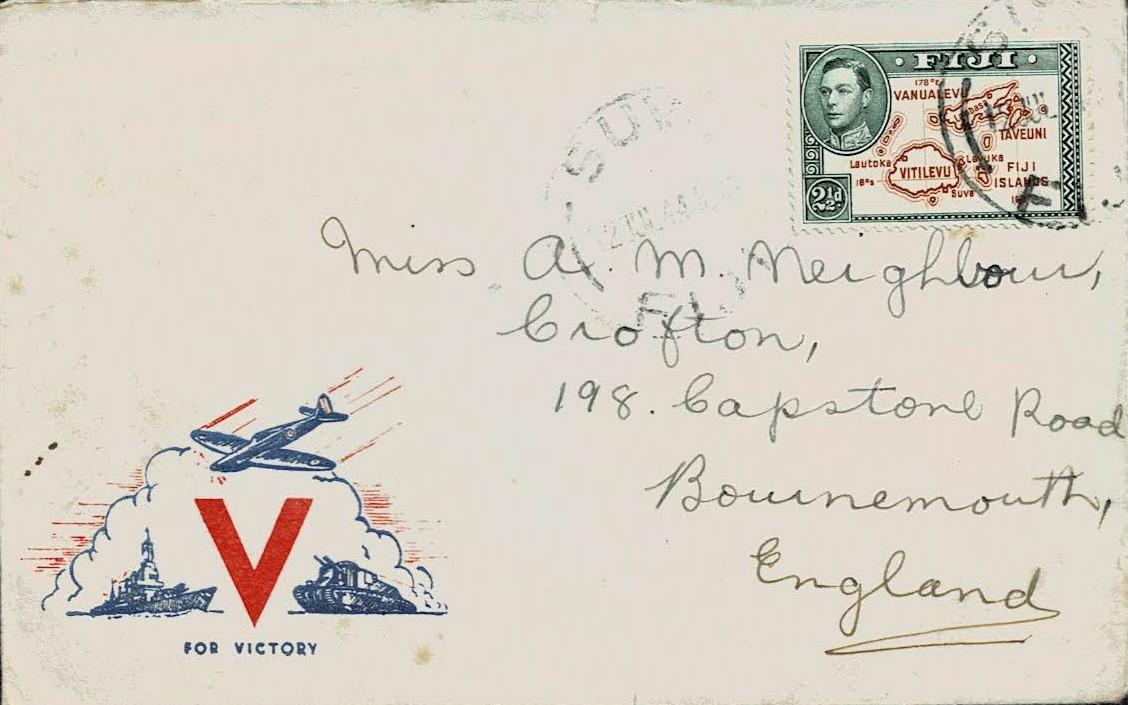 · FIJI ·
178° E
VANUALEVU
TAVEUNI
Lautoka
Levuka
VITILEVU
FIJI
ISLANDS
18° S
Suva
2½d
12 JUL 44
FIJI
Miss A. M. Neighbour,
Crofton,
198. Capstone Road
Bournemouth,
England
V
FOR VICTORY